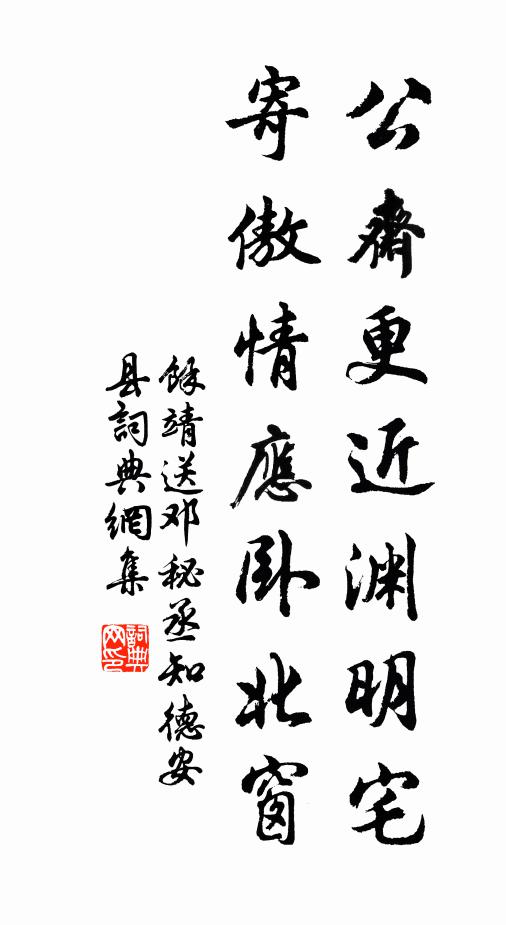 公齋更近渊明宅
寄傲情應卧北窗
餘靖送邓秘丞知德安
县詞典網集
詞典
网印